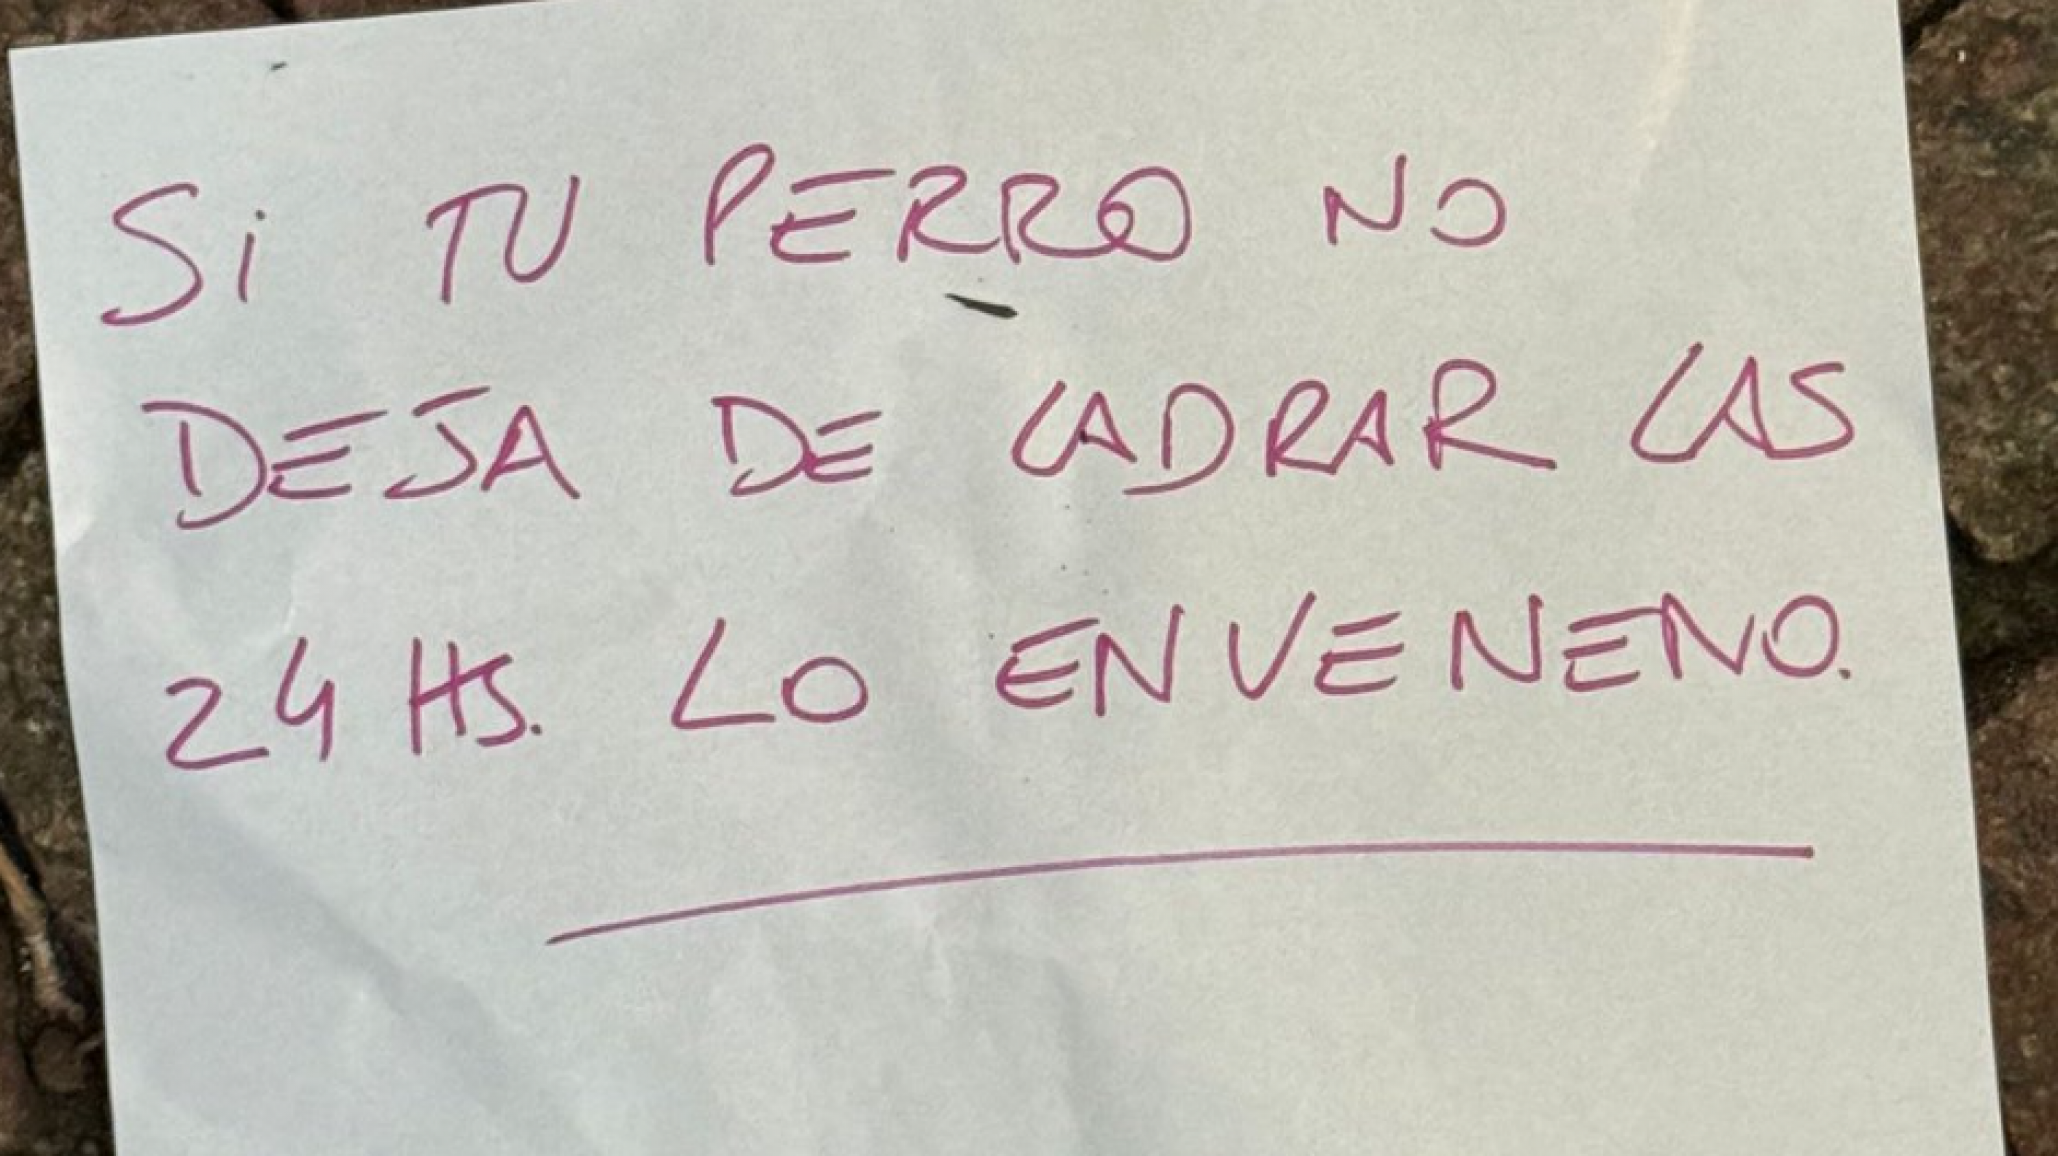 Si TU PERRO NO
DEJA DE LADRAR LAS
24 HS. LO ENVENENO.